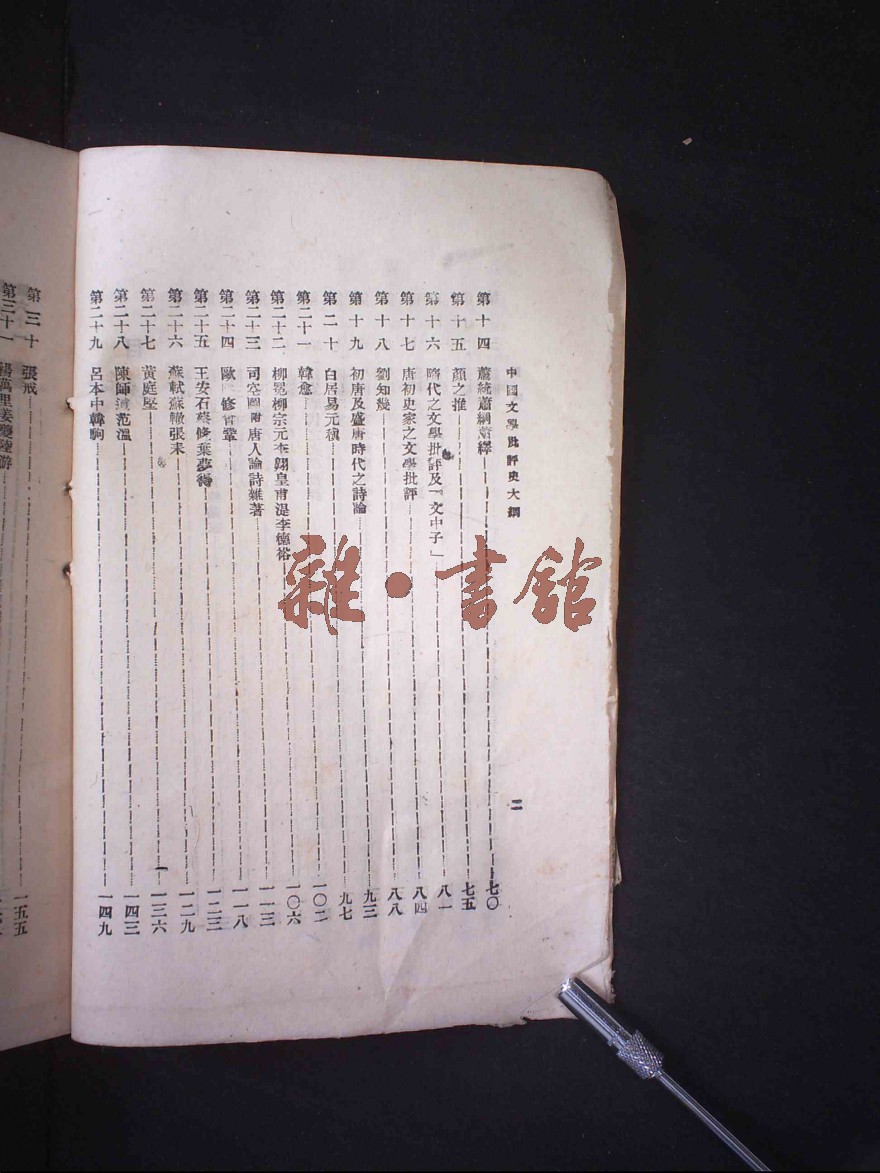 中國文學批評史大綱
二
第十四 蕭統蕭綱蕭繹 七〇
第十五 顏之推 七五
第十六 隋代之文學批評及「文中子」 八一
第十七 唐初史家之文學批評 八四
第十八 劉知幾 八八
第十九 初唐及盛唐時代之詩論 九三
第二十 白居易元稹 九七
第二十一 韓愈 一〇二
第二十二 柳冕柳宗元李翱皇甫湜李德裕 一〇六
第二十三 司空圖附唐人論詩雜著 一一三
第二十四 歐 修曾鞏 一一八
第二十五 王安石 葉夢得 一二三
第二十六 蘇軾蘇轍張耒 一二九
第二十七 黃庭堅 一三六
第二十八 陳師道范溫 一四三
第二十九 呂本中韓駒 一四九
第三十 張戒 一五五
第三十一 楊萬里姜夔陸游
雜·書館